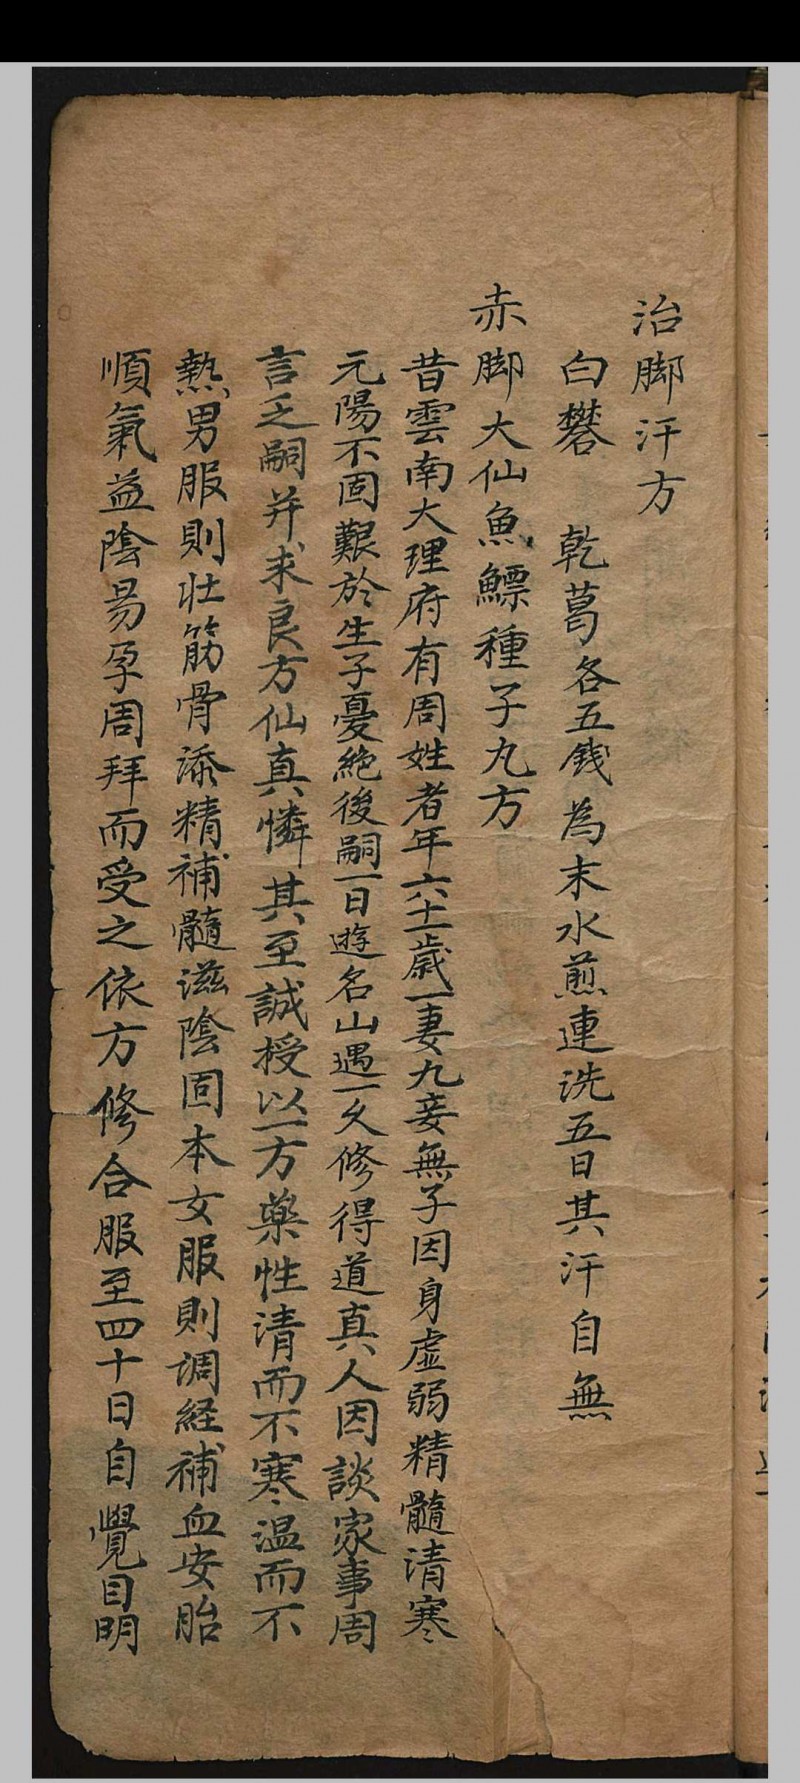 治脚汗方
白礬 乾葛各五錢為末水煎連洗五日其汗自無
赤脚大仙魚鰾種子丸方
昔雲南大理府有周姓者年六十一歲一妻九妾無子因身虛弱精髓清寒
元陽不固艱於生子憂絕後嗣一日遊名山遇一久修得道真人因談家事周
言乏嗣并求良方仙真憐其至誠授以一方藥性清而不寒温而不
熱男服則壯筋骨添精補髓滋陰固本女服則調経補血安胎
順氣益陰易孕周拜而受之依方修合服至四十日自覺目明